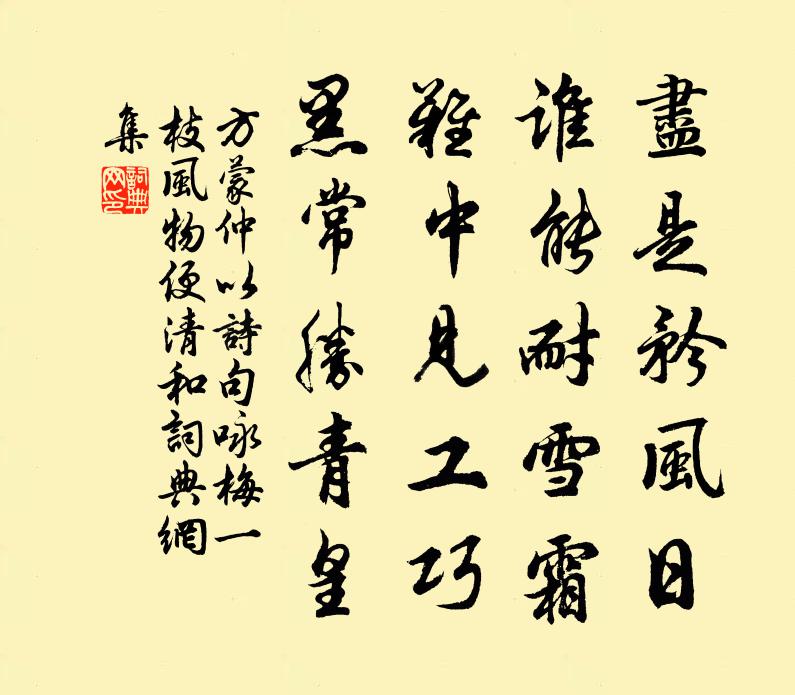 盡是矜風日
誰能耐雪霜
難中見工巧
黑常勝青皇
方蒙仲以詩句咏梅一
枝風物便清和詞典網
集
詞典
网印